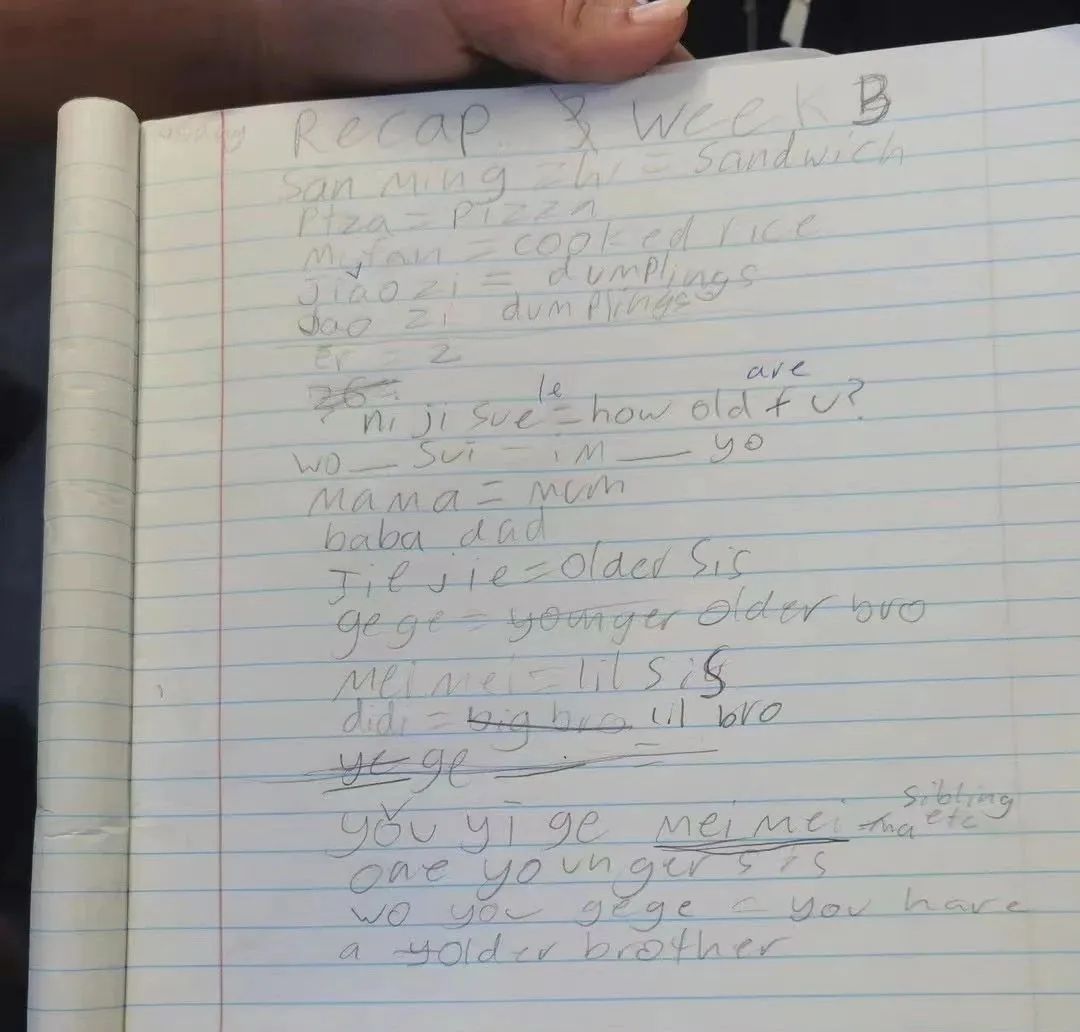 Recap 3 Week B
San Ming zhi = Sandwich
Piza = Pizza
Mifan = cooked rice
Jiǎo zi = dumplings
bao zi dumplings
Er = 2
26 =
le are
ni ji sue = how old f u?
wo __ Sui - im __ yo
Mama = mum
baba dad
Jie jie = older Sis
gege = younger older bro
Mei mei = lil sis
didi = big bro lil bro
ye ge =
sibling
yǒu yī ge meimei ma etc
one younger sis
wo you gege = you have
a yolder brother